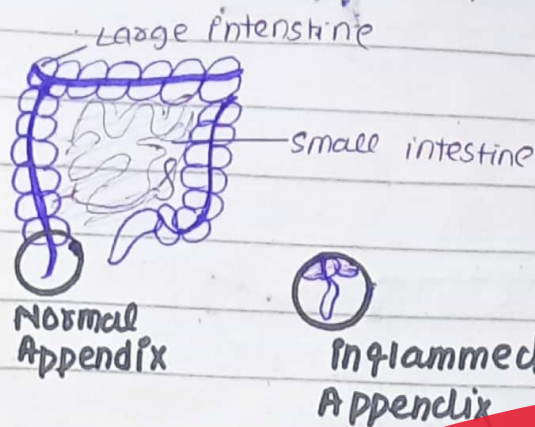 Large intenstine
small intestine
Normal
Appendix
inflammed
Appendix